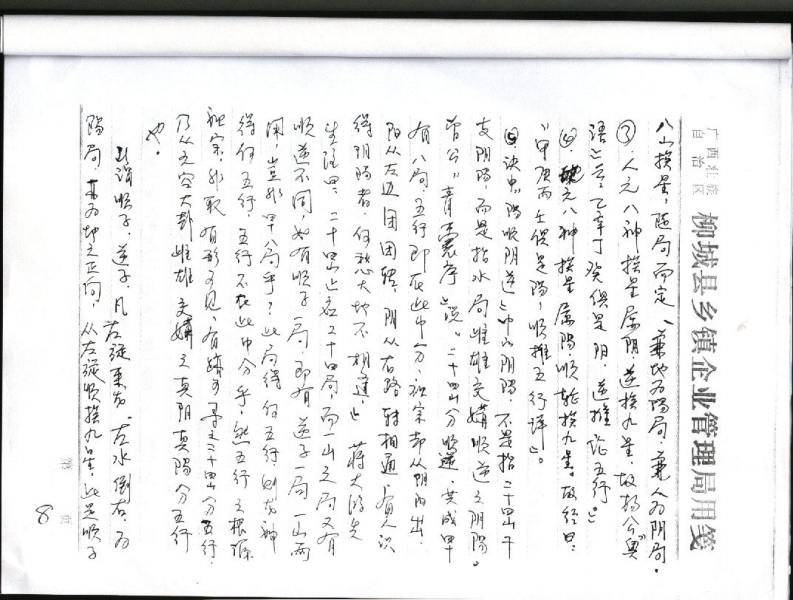 广西壮族自治区 柳城县乡镇企业管理局用笺
八山挨星,随局而定、兼地为阳局,兼人为阴局。
③、人元八神挨星属阴,逆挨九星,故杨公《奥
语》云:乙辛丁癸俱是阴,逆推论五行。
④、地元八神挨星属阳,顺轮挨九星。故经曰:
“甲庚丙壬俱是阳,顺推五行详”。
⑤诀中“阳顺阴逆”中的阴阳,不是指二十四山干
支阴阳,而是指水局雌雄交媾顺逆之阴阳。
曾公“青囊序”说:“二十四山分顺逆,共成四十
有八局,五行即在此中分,祖宗却从阴阳出,
阳从左边团团转,阴从右路转相通,有人识
得阴阳者,何愁大地不相逢” 蒋大鸿先
生注曰:二十四山止有二十四局,而一山之局又有
顺逆不同,如有顺子一局,即有逆子一局,一山两
局,岂非四十八局乎?此局得何五行,则落神
得何五行,五行不在此中分乎,然五行之根源
祖宗,非取有形可见,有迹可寻之二十四山分五行,
乃从玄空大卦雌雄交媾之真阴真阳分五行
也。
所谓顺子、逆子,凡左旋来为,左水倒右,为
阳局,本为坤之正向,从左旋顺挨九星,此是顺子
第 8 页